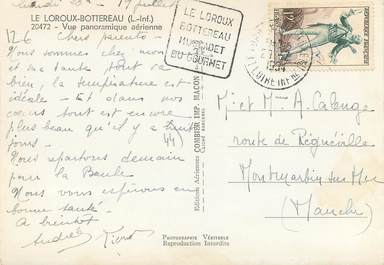 LE LOROUX-BOTTEREAU (L.-Inf.)
20472 - Vue panoramique aérienne
Chers parents -
Nous sommes chez mon
et ma tante tout va
bien, la température est
idéale - Et dans nos
cœurs tout est encore
plus beau qu'il y a
jours -
Nous repartons demain
pour la Baule
Nous vous espérons en
bonne santé -
A bientôt
Andrée
44)
Edition Aériennes COMBIER IMP. MACON
LE LOROUX
BOTTEREAU
MUSCADET
DU GOURMET
12F
LOIRE INFRE
Mr et Mme A. Calenge
route de Régneville
Montmartin sur Mer
(Manche)
PHOTOGRAPHIE VÉRITABLE
Reproduction Interdite